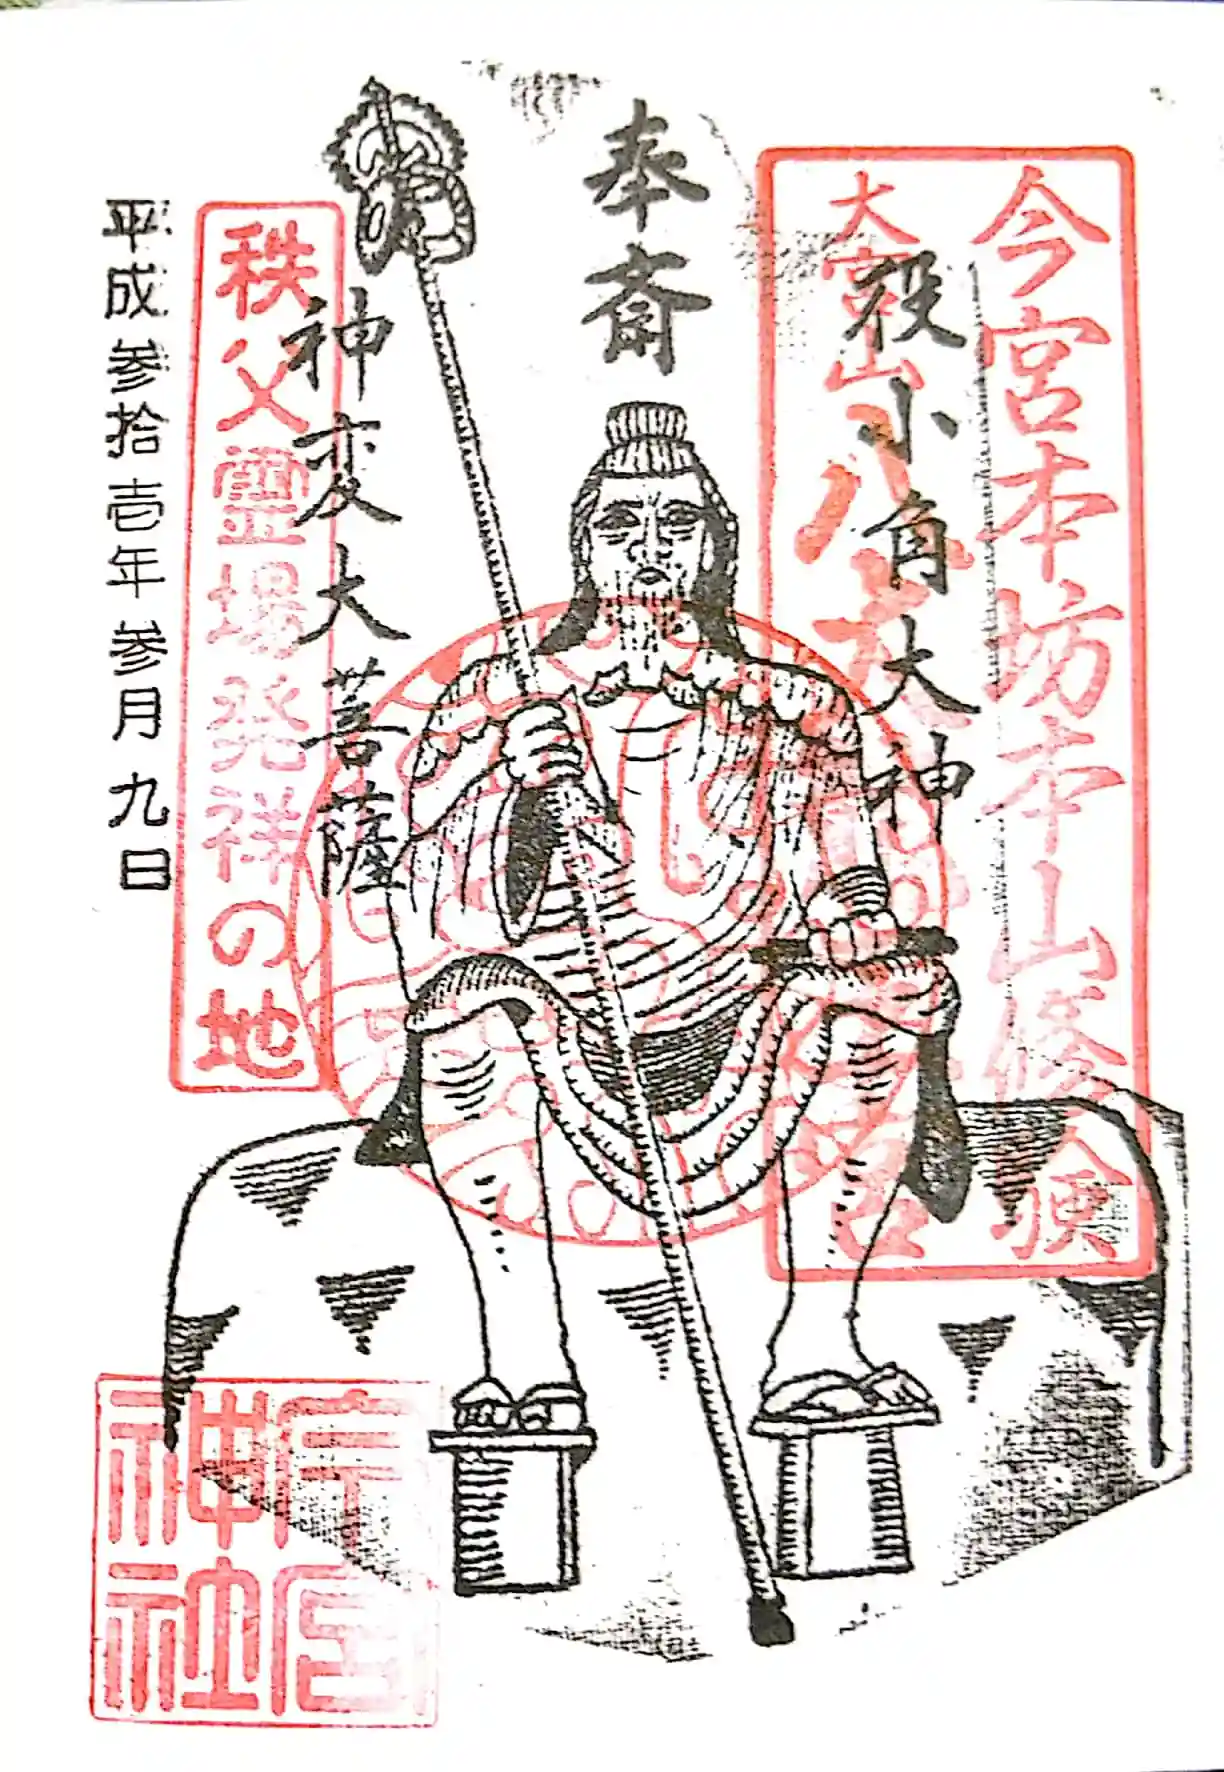 今宮本坊本山修験
大宮山八大宮
役小角大神
奉斎
神変大菩薩
秩父霊場発祥の地
平成参拾壱年参月九日
今宮
神社